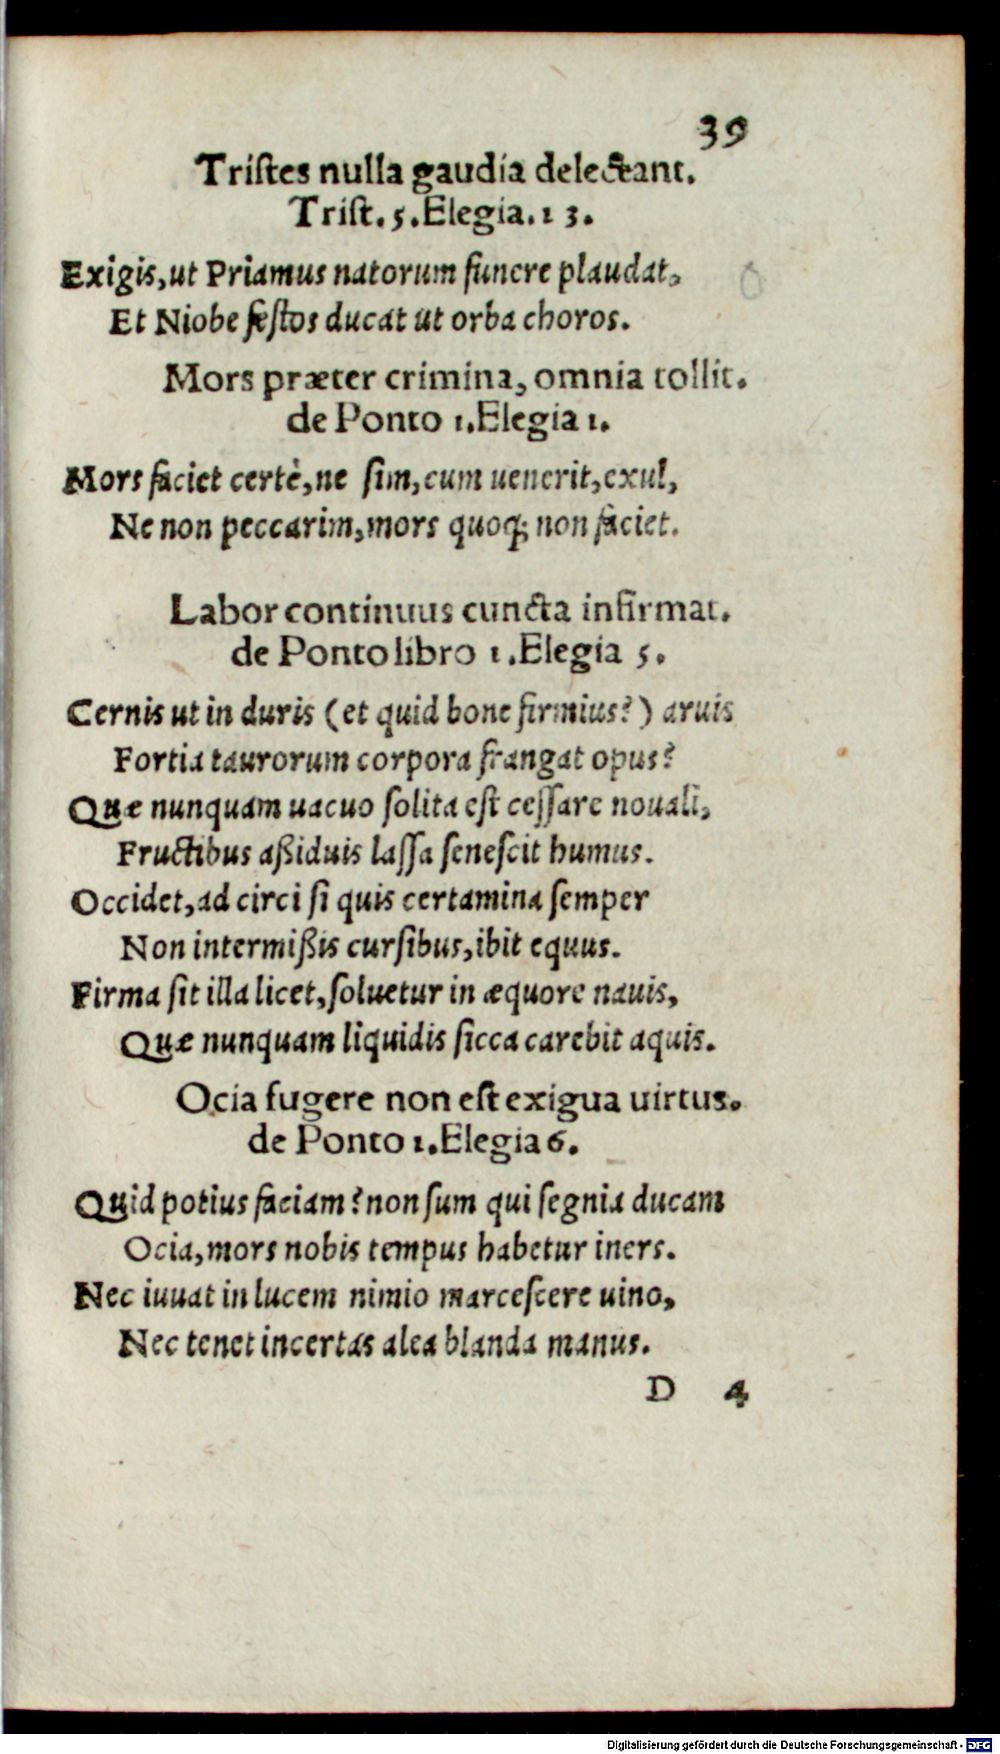 39
Tristes nulla gaudia delectant.
Trist. 5. Elegia. 13.
Exigis, ut Priamus natorum funere plaudat,
Et Niobe festos ducat ut orba choros.
Mors præter crimina, omnia tollit.
de Ponto 1. Elegia 1.
Mors faciet certè, ne sim, cum uenerit, exul,
Ne non peccarim, mors quoq; non faciet.
Labor continuus cuncta infirmat.
de Ponto libro 1. Elegia 5.
Cernis ut in duris (et quid boue firmius?) aruis
Fortia taurorum corpora frangat opus?
Quæ nunquam uacuo solita est cessare nouali,
Fructibus aßiduis lassa senescit humus.
Occidet, ad circi si quis certamina semper
Non intermißis cursibus, ibit equus.
Firma sit illa licet, soluetur in æquore nauis,
Quæ nunquam liquidis sicca carebit aquis.
Ocia fugere non est exigua uirtus.
de Ponto 1. Elegia 6.
Quid potius faciam? non sum qui segnia ducam
Ocia, mors nobis tempus habetur iners.
Nec iuuat in lucem nimio marcescere uino,
Nec tenet incertas alea blanda manus.
D 4
Digitalisierung gefördert durch die Deutsche Forschungsgemeinschaft - DFG